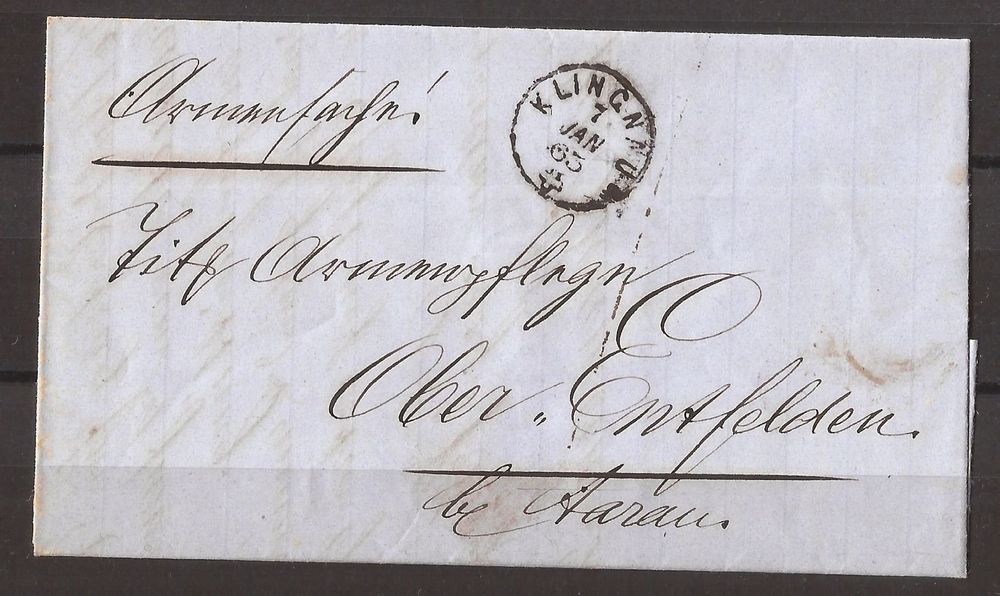 Armensache!
KLINGNAU
7
JAN
65
Titl Armenpflege
Ober-Entfelden.
be Aarau.